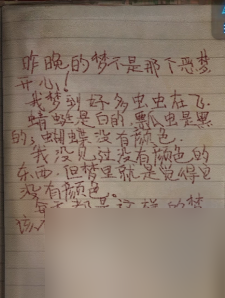 昨晚的梦不是那个恶梦
开心！
我梦到好多虫虫在飞.
蜻蜓是白的.瓢虫是黑
的；蝴蝶没有颜色.
我没见过没有颜色的
东西.但梦里就是觉得
没有颜色.